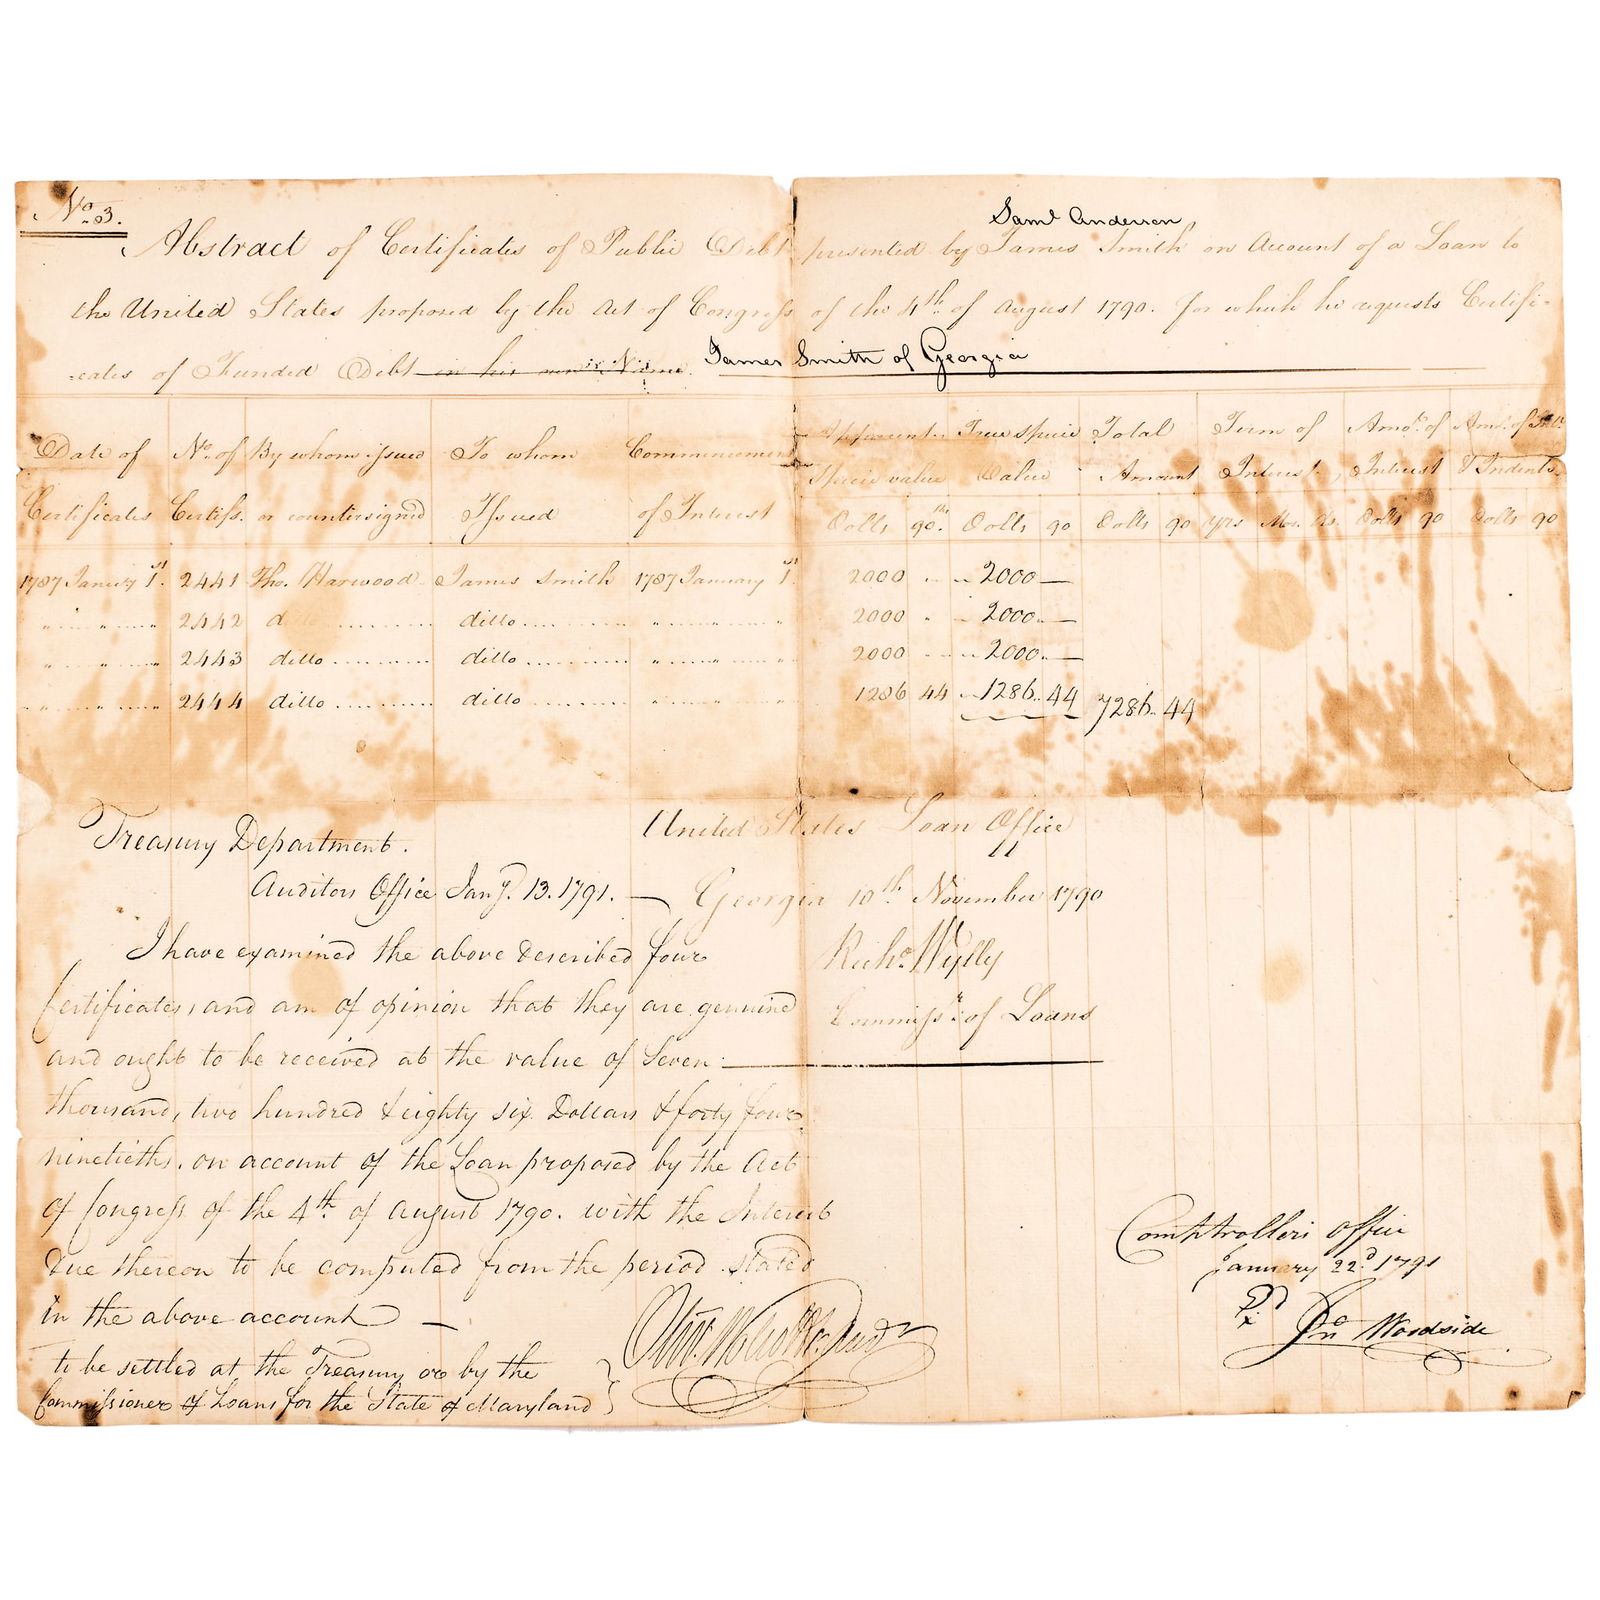 No. 3.
Saml Anderson
Abstract of Certificates of Public Debt presented by James Smith on Account of a Loan to
the United States proposed by the Act of Congress of the 4th of August 1790. for which he requests Certifi-
-cates of Funded Debt in his own Name. James Smith of Georgia
Date of Certificates No. of Certifs. By whom issued or countersigned To whom Issued Commencement of Interest Specie value Dolls 90th. True specie Value Dolls 90 Total Amount Dolls 90 Term of Interest yrs Mos. ds. Amot. of Interest Dolls 90 Amt. of Int. & Indents. Dolls 90
1787 January 1st. 2441 Tho. Harwood James Smith 1787 January 1st. 2000 2000
" " " 2442 ditto ditto " " " 2000 " 2000
" " " 2443 ditto ditto " " " 2000 2000
" " " 2444 ditto ditto " " 1286 44 1286 44 7286 44
Treasury Department.
Auditors Office Jany. 13. 1791.
I have examined the above described four
Certificates, and am of opinion that they are genuine
and ought to be received at the value of Seven
thousand, two hundred & eighty six Dollars & forty four
ninetieths. on account of the Loan proposed by the Act
of Congress of the 4th. of August 1790. with the Interest
due thereon to be computed from the period stated
in the above account —
to be settled at the Treasury or by the
Commissioner of Loans for the State of Maryland
United States Loan Office
Georgia 10th. November 1790
Richd. Wylly
Commissr. of Loans
Comptrollers Office
January 22d. 1791
Jno Woodside